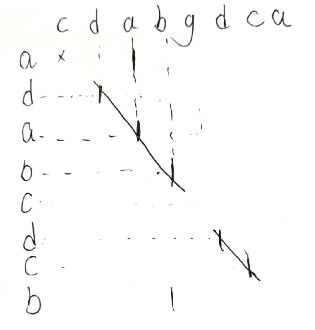 c d a b g d c a
a x
d
a
b
c
d
c
b